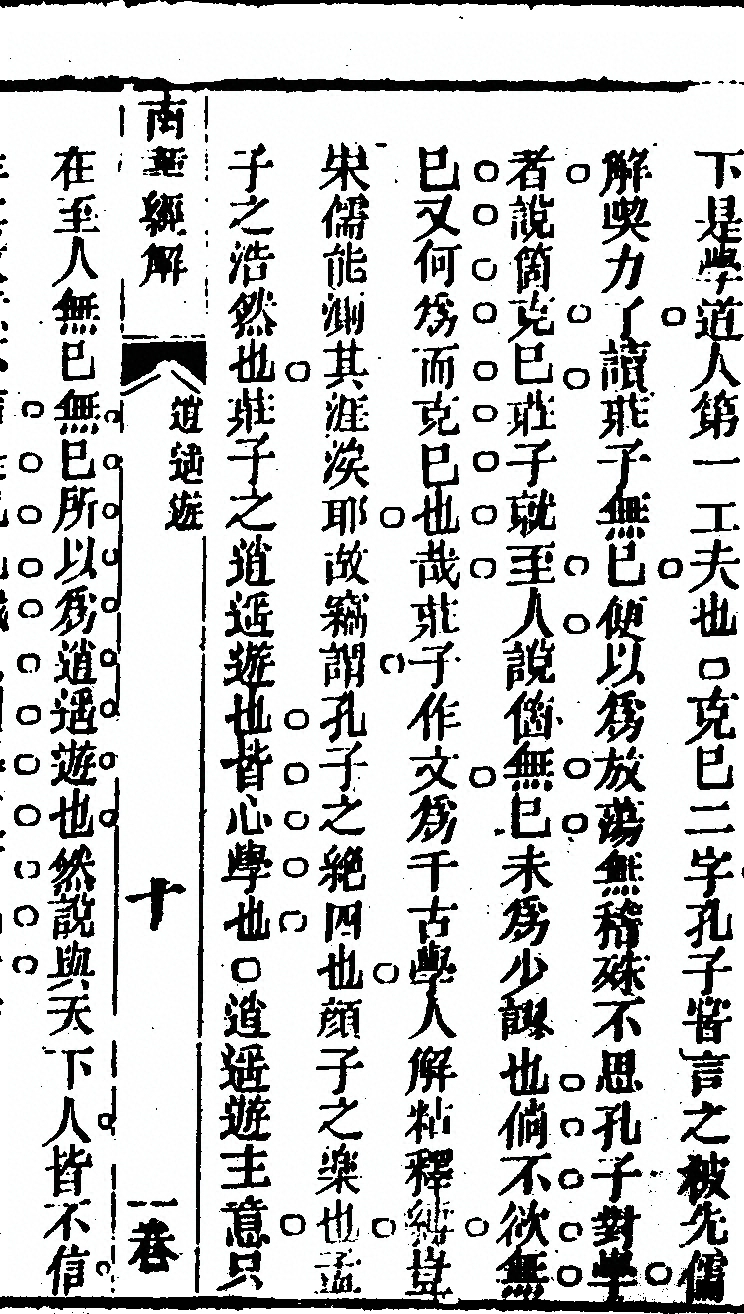 下是學道人第一工夫也○克巳二字孔子嘗言之被先儒
解喫力了讀莊子無巳便以爲放蕩無稽殊不思孔子對學
者說箇克巳莊子就至人說箇無巳未爲少謬也倘不欲無
巳又何爲而克巳也哉莊子作文爲千古學人解粘釋縛豈
宋儒能測其涯涘耶故竊謂孔子之絶四也顔子之樂也孟
子之浩然也莊子之逍遥遊也皆心學也○逍遥遊主意只
南華經解 逍遥遊 十 一卷
在至人無巳無巳所以爲逍遥遊也然說與天下人皆不信